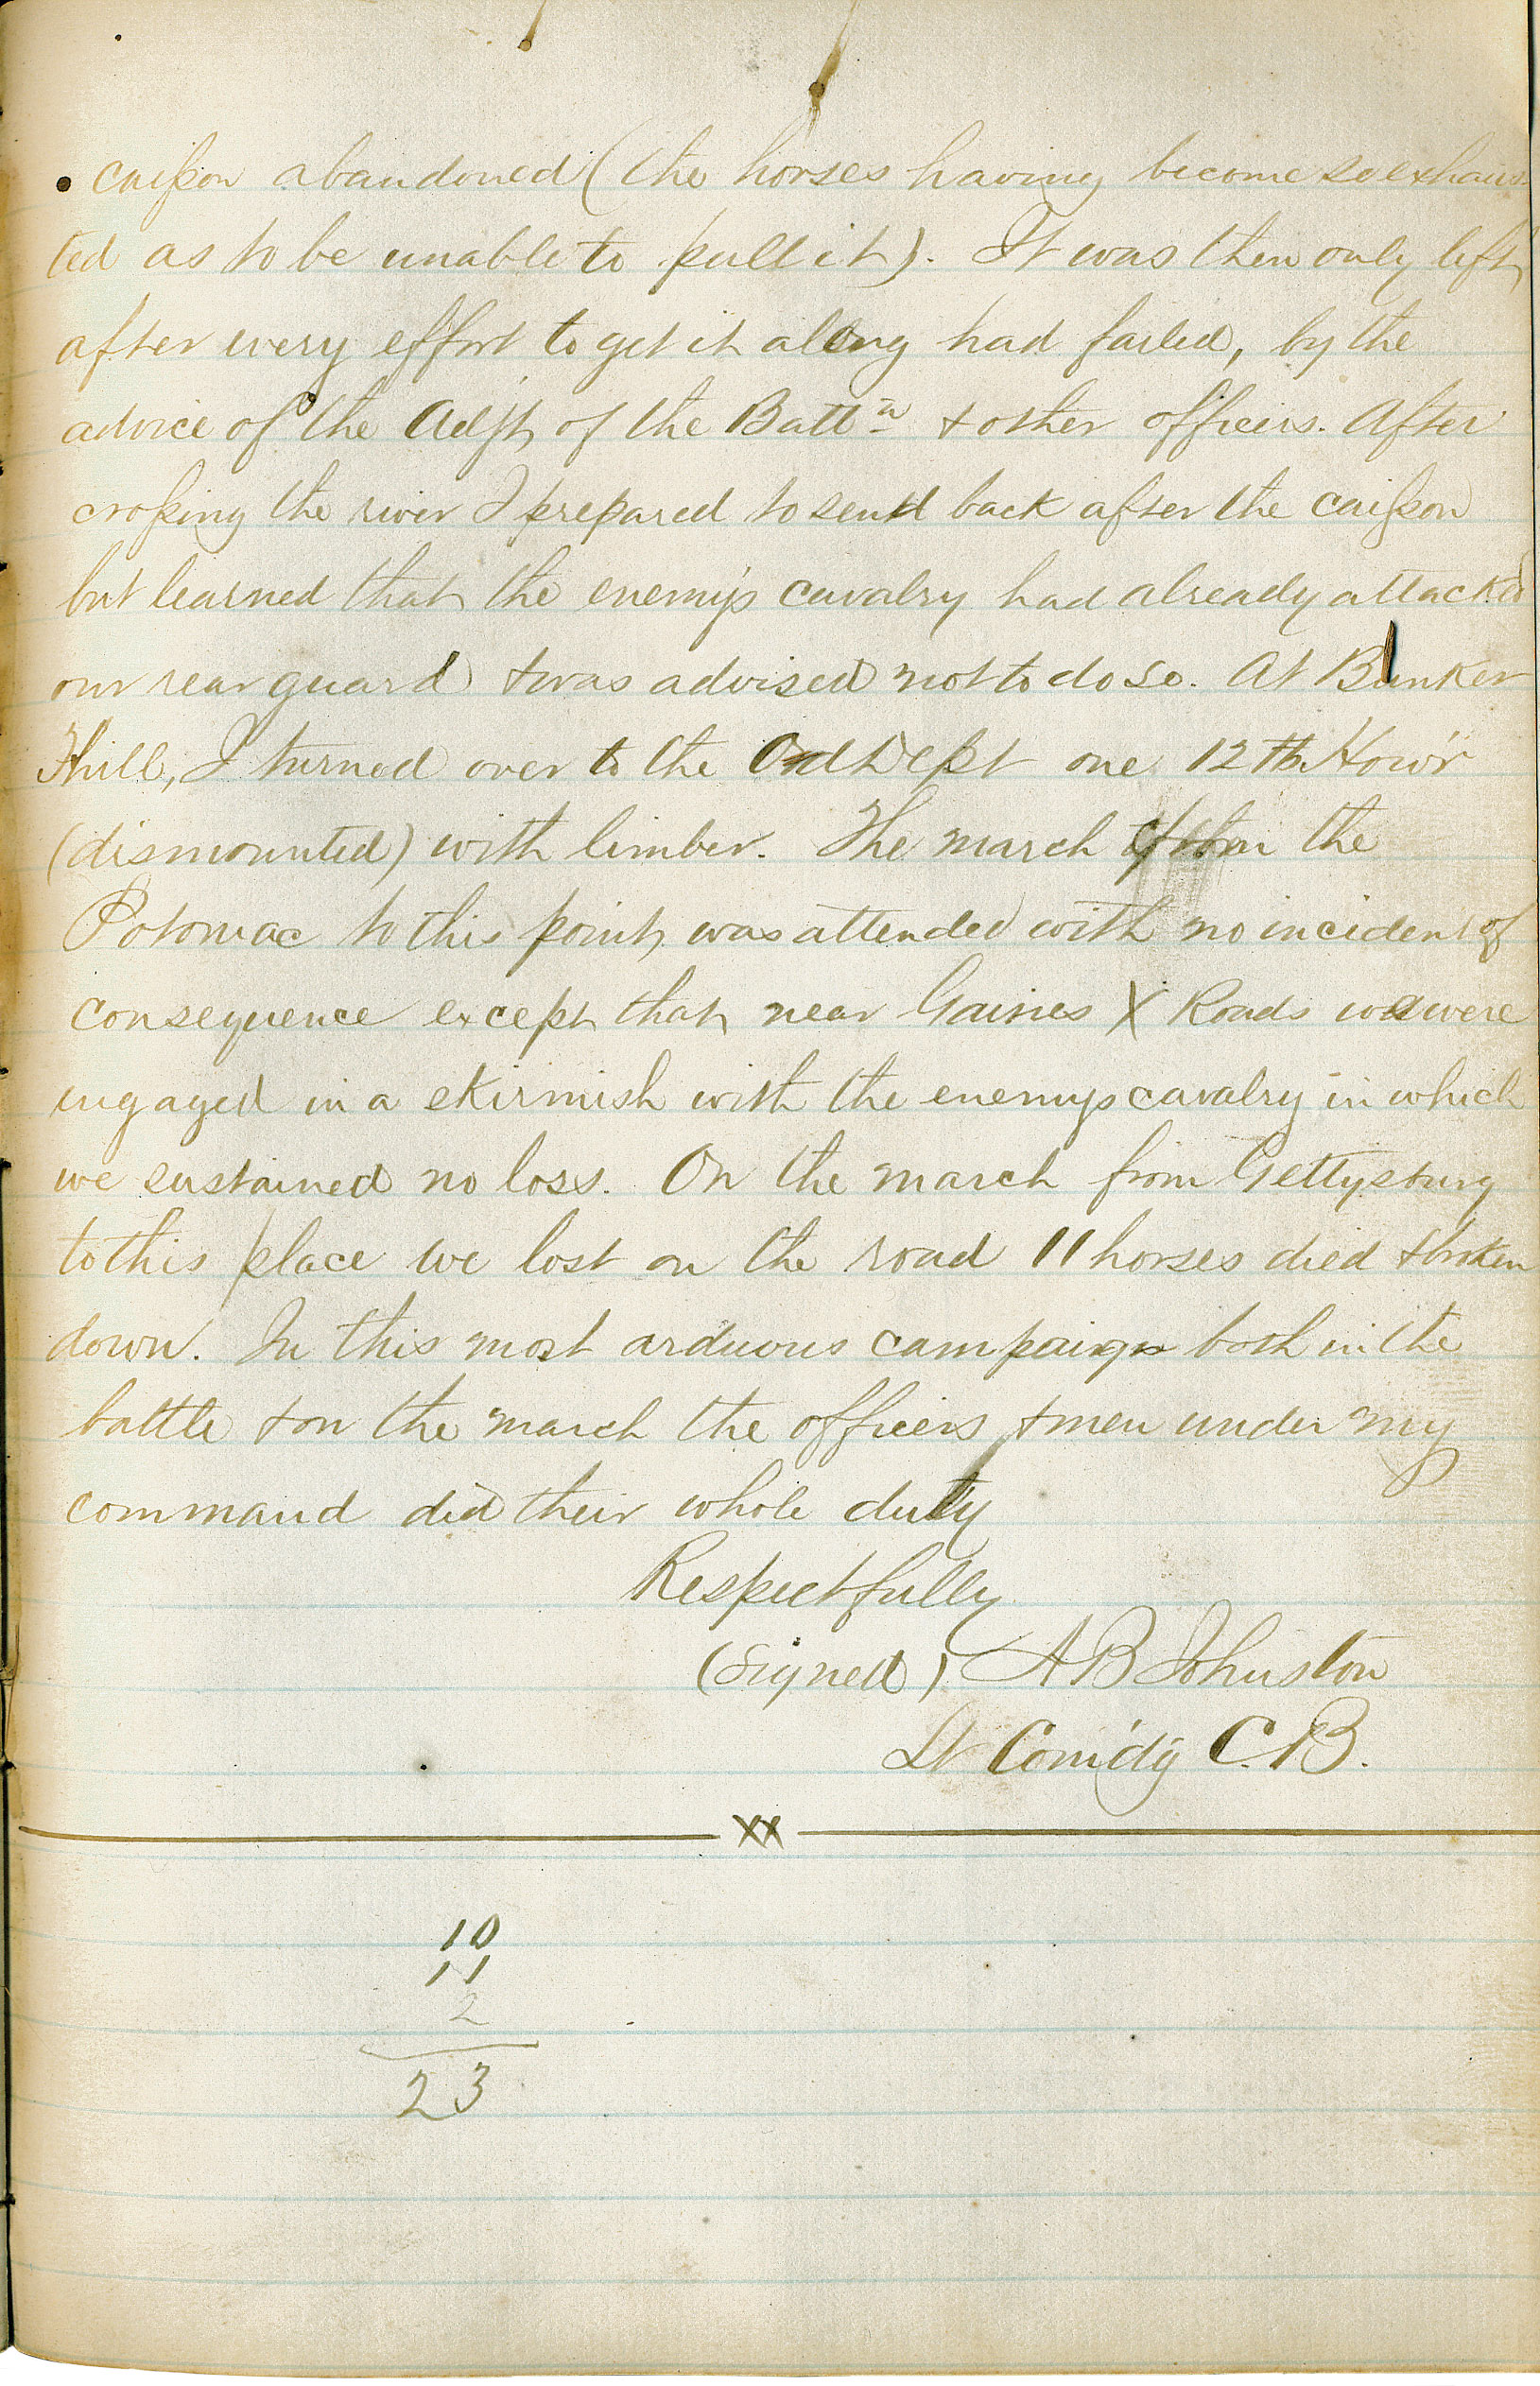 caisson abandoned (the horses having become so exhaus-
ted as to be unable to pull it). It was then only left
after every effort to get it along had failed, by the
advice of the Adj't of the Battn + other officers. After
crossing the river I prepared to send back after the caisson
but learned that the enemy's cavalry had already attacked
our rear guard + was advised not to do so. At Bunker
Hill, I turned over to the Ord Dept one 12 lb How'r
(dismounted) with limber. The march from the
Potomac to this point was attended with no incident of
consequence except that near Gaines X Roads we were
engaged in a skirmish with the enemys cavalry in which
we sustained no loss. On the march from Gettysburg
to this place we lost on the road 11 horses died + broken
down. In this most arduous campaign both in the
battle + on the march the officers + men under my
command did their whole duty
Respectfully
(Signed) A B Johnston
Lt Com'dg C.B.
XX
10
11
2
23